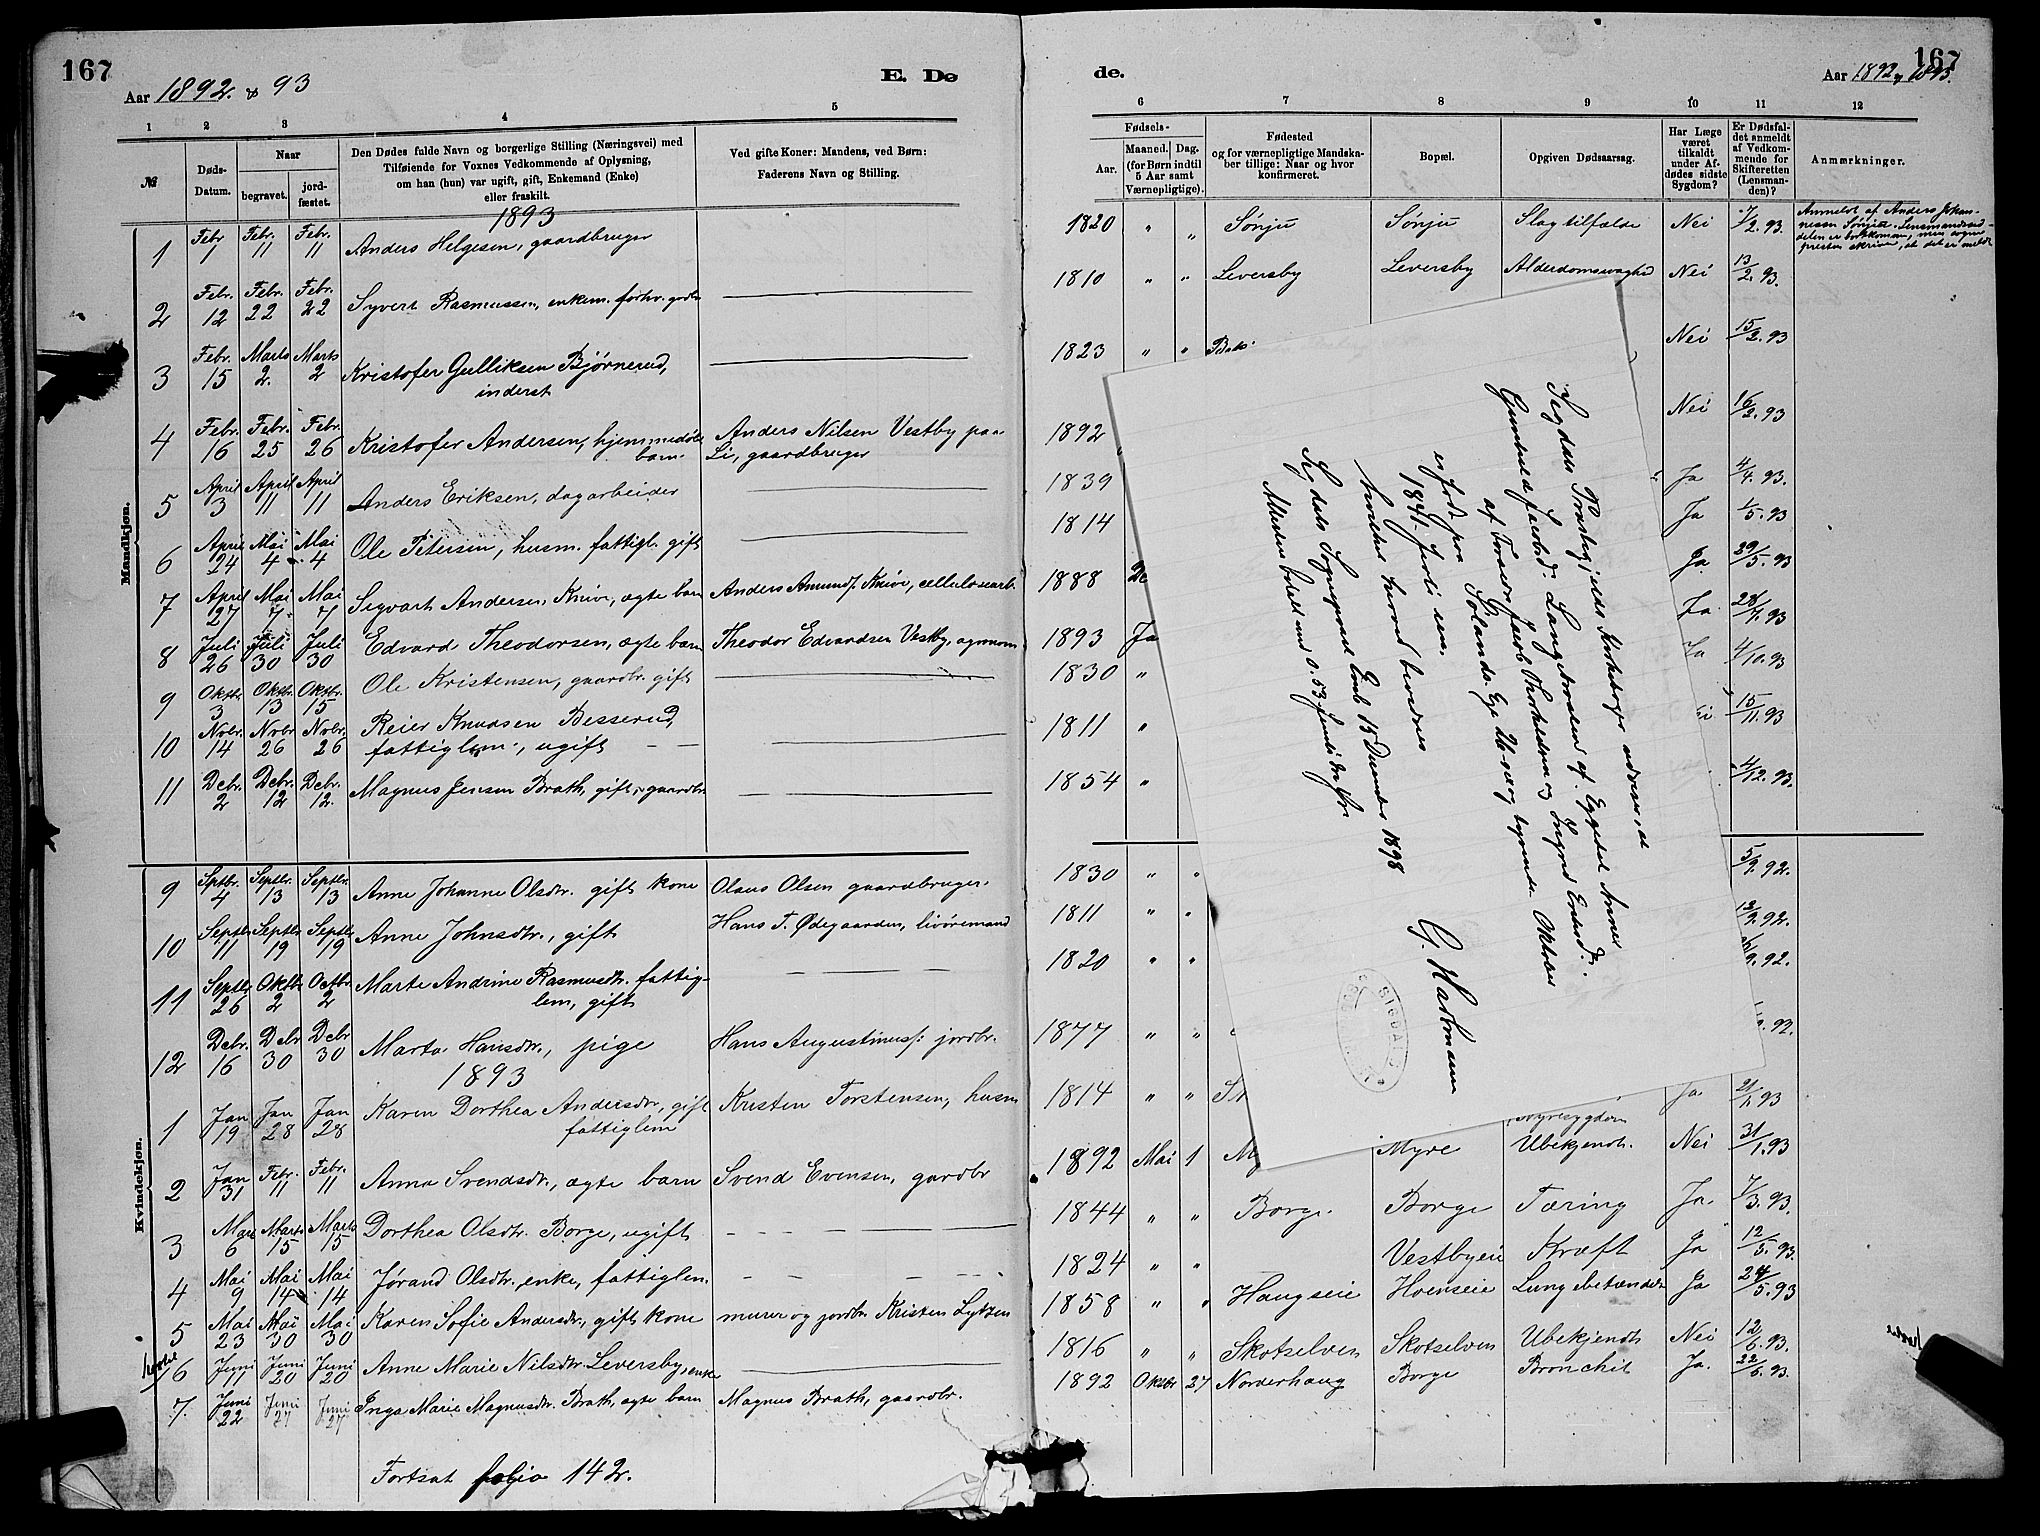 167
Aar 1892. & 93
E. Dø
1 2 3 4 5
№
Døds-Datum.
Naar
begravet.
jord-fæstet.
Den Dødes fulde Navn og borgerlige Stilling (Næringsvei) med
Tilføiende for Voxnes Vedkommende af Oplysning,
om han (hun) var ugift, gift, Enkemand (Enke)
eller fraskilt.
Ved gifte Koner: Mandens, ved Børn:
Faderens Navn og Stilling.
1893
Mandkjøn.
1 Febr 7 Febr. 11 Febr. 11 Anders Helgesen, gaardbruger
2 Febr. 12 Febr. 22 Febr. 22 Syvert Rasmussen, enkem. forhv. grdbr
3 Febr. 15 Marts 2. Marts 2 Kristofer Gulliksen Bjørnerud,
inderst
4 Febr. 16 Febr. 25 Febr. 26 Kristofer Andersen, hjemmedøbt Anders Nilsen Vestby paa
barn. Li, gaardbruger
5 April 3 April 11 April 11 Anders Eriksen, dagarbeider
6 April 24 Mai 4 Mai 4 Ole Petersen, husm. fattigl. gift
7 April 27 Mai 7 Mai 7 Sigvart Andersen Knive, ægte barn Anders Amunds. Knive, cellulosearb.
8 Juli 26 Juli 30 Juli 30 Edvard Theodorsen, ægte barn Theodor Edvardsen Vestby, agronom
9 Oktbr. 3 Oktbr. 13 Oktbr. 15 Ole Kristensen, gaardbr. gift
10 Novbr. 14 Novbr. 26 Novbr. 26 Reier Knudsen Besserud,
fattiglem, ugift
11 Debr. 2 Debr. 12 Debr. 12. Magnus Jensen Brath, gift, gaardbr.
Kvindekjøn.
9 Sptbr. 4 Septbr. 13 Septbr. 13 Anne Johanne Olsdtr. gift kone Olaus Olsen gaardbruger.
10 Septbr 11 Septbr 19 Septbr 19 Anne Johnsdtr., gift Hans T. Ødegaarden, livøremand
11 Septbr 26 Oktbr 2 Octbr. 2 Marte Andrine Rasmusdtr. fattig-
lem, gift
12 Debr. 16 Debr 30 Debr 30 Marta Hansdtr., pige Hans Augustinuss: jordbr.
1893
1 Jan 19 Jan 28 Jan 28 Karen Dorthea Andersdtr, gift Kristen Torstensen, husm
fattiglem
2 Jan 31 Febr. 11 Febr. 11 Anna Svendsdtr., ægte barn Svend Evensen, gardbr
3 Mars 6 Marts 15 Marts 15 Dorthea Olsdtr. Borge, ugift
4 Mai 9 Mai 14 Mai 14 Jørand Olsdtr. enke, fattiglem.
5 Mai 23 Mai 30 Mai 30 Karen Sofie Andersdtr, gift kone murer og jordbr Kristen Lykzen
6 Juni 11 Juni 20 Juni 20 Anne Marie Nilsdtr. Leversby, enke
7. Juni 22 Juni 27 Juni 27 Inga Marie Magnusdtr. Brath, ægte barn Magnus Brath, gaardbr.
Fortsat folio 142.
de.
Aar 1892 og 1893.
167
6 7 8 9 10 11 12
Fødsels-
Aar.
Maaned. Dag.
(for Børn indtil
5 Aar samt
Værnepligtige).
Fødested
og for værnepligtige Mandska-
ber tillige: Naar og hvor
konfirmeret.
Bopæl.
Opgiven Dødsaarsag.
Har Læge
været
tilkaldt
under Af-
dødes sidste
Sygdom?
Er Dødsfal-
det anmeldt
af Vedkom-
mende for
Skifteretten
(Lensman-
den)?
Anmærkninger.
1820 " " Sønju Sønju Slagtilfælde Nei 7/2. 93. Anmeldt af Anders Johan-
nesen Sønju. Lensmandssed-
delen er bortkommen, men sogne
presten skriver, at det er meldt
1810 " " Leversby Leversby Alderdomssvaghed Nei 13/2. 93.
1823 " " Bak Nei 15/2. 93
1892 Nei 16/2. 93
1839 Ja 4/4. 93.
1814 Ja 1/5. 93
1888 De Ja. 29/5. 93
1893 Ja Ja. 28/7. 93
1830 " Ja 4/10. 93
1811 " 15/11. 93
1854 " 4/12. 93.
1830 " " 5/9. 92.
1811 " " 12/9. 92.
1820 " " 9. 92.
1877 " " 92.
1814 " " Ja. 21/1. 93
1892 Mai 1 My Myre Ubekjendt. Nei 31/1. 93
1844 " " Borge. Borge Tæring Ja. 7/3. 93.
1824 " " Vestbyeie Kræft Ja 12/5. 93.
1858 " " Haugseie Hoenseie Lungebetændelse Ja 24/5. 93
1816 " " Skotselven Skotselven Ubekjendt Nei 12/6. 93.
1892 Oktbr 27 Norderhaug Borge Bronchit Ja. 22/6. 93.
Sigdals Præstegjelds Kirkebøger udvise, at
Gunhild Jacobsd: Langebraaten af Eggedal Annex
af Forældre Jacob Thorkildsen og Ingrid Eriksd:
er født paa Solands Eje 26-sex og tyvende Oktober
1841-firti een.
hvilket herved bevidnes
Sigdals Sognepræst Emb. 15 December 1898
G. Hartmann
SIGDALS